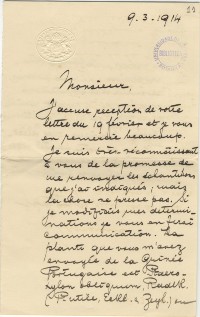 23
9-3-1914
Monsieur,
J'accuse reception de votre
lettre du 19 février et je vous
en remercie beaucoup.
Je suis très reconnaissant
à vous de la promesse de
me renvoyer les échantillons
que j'ai indiqués; mais
la chose ne presse pas. Si
je modifiais mes determi-
nations je vous en ferai
communication. La
plante que vous m'avez
envoyée de la Guiné
Portugaise est
xylon obliquum, Radlk.
Rutile, Eckl. & Zeyh.) ou